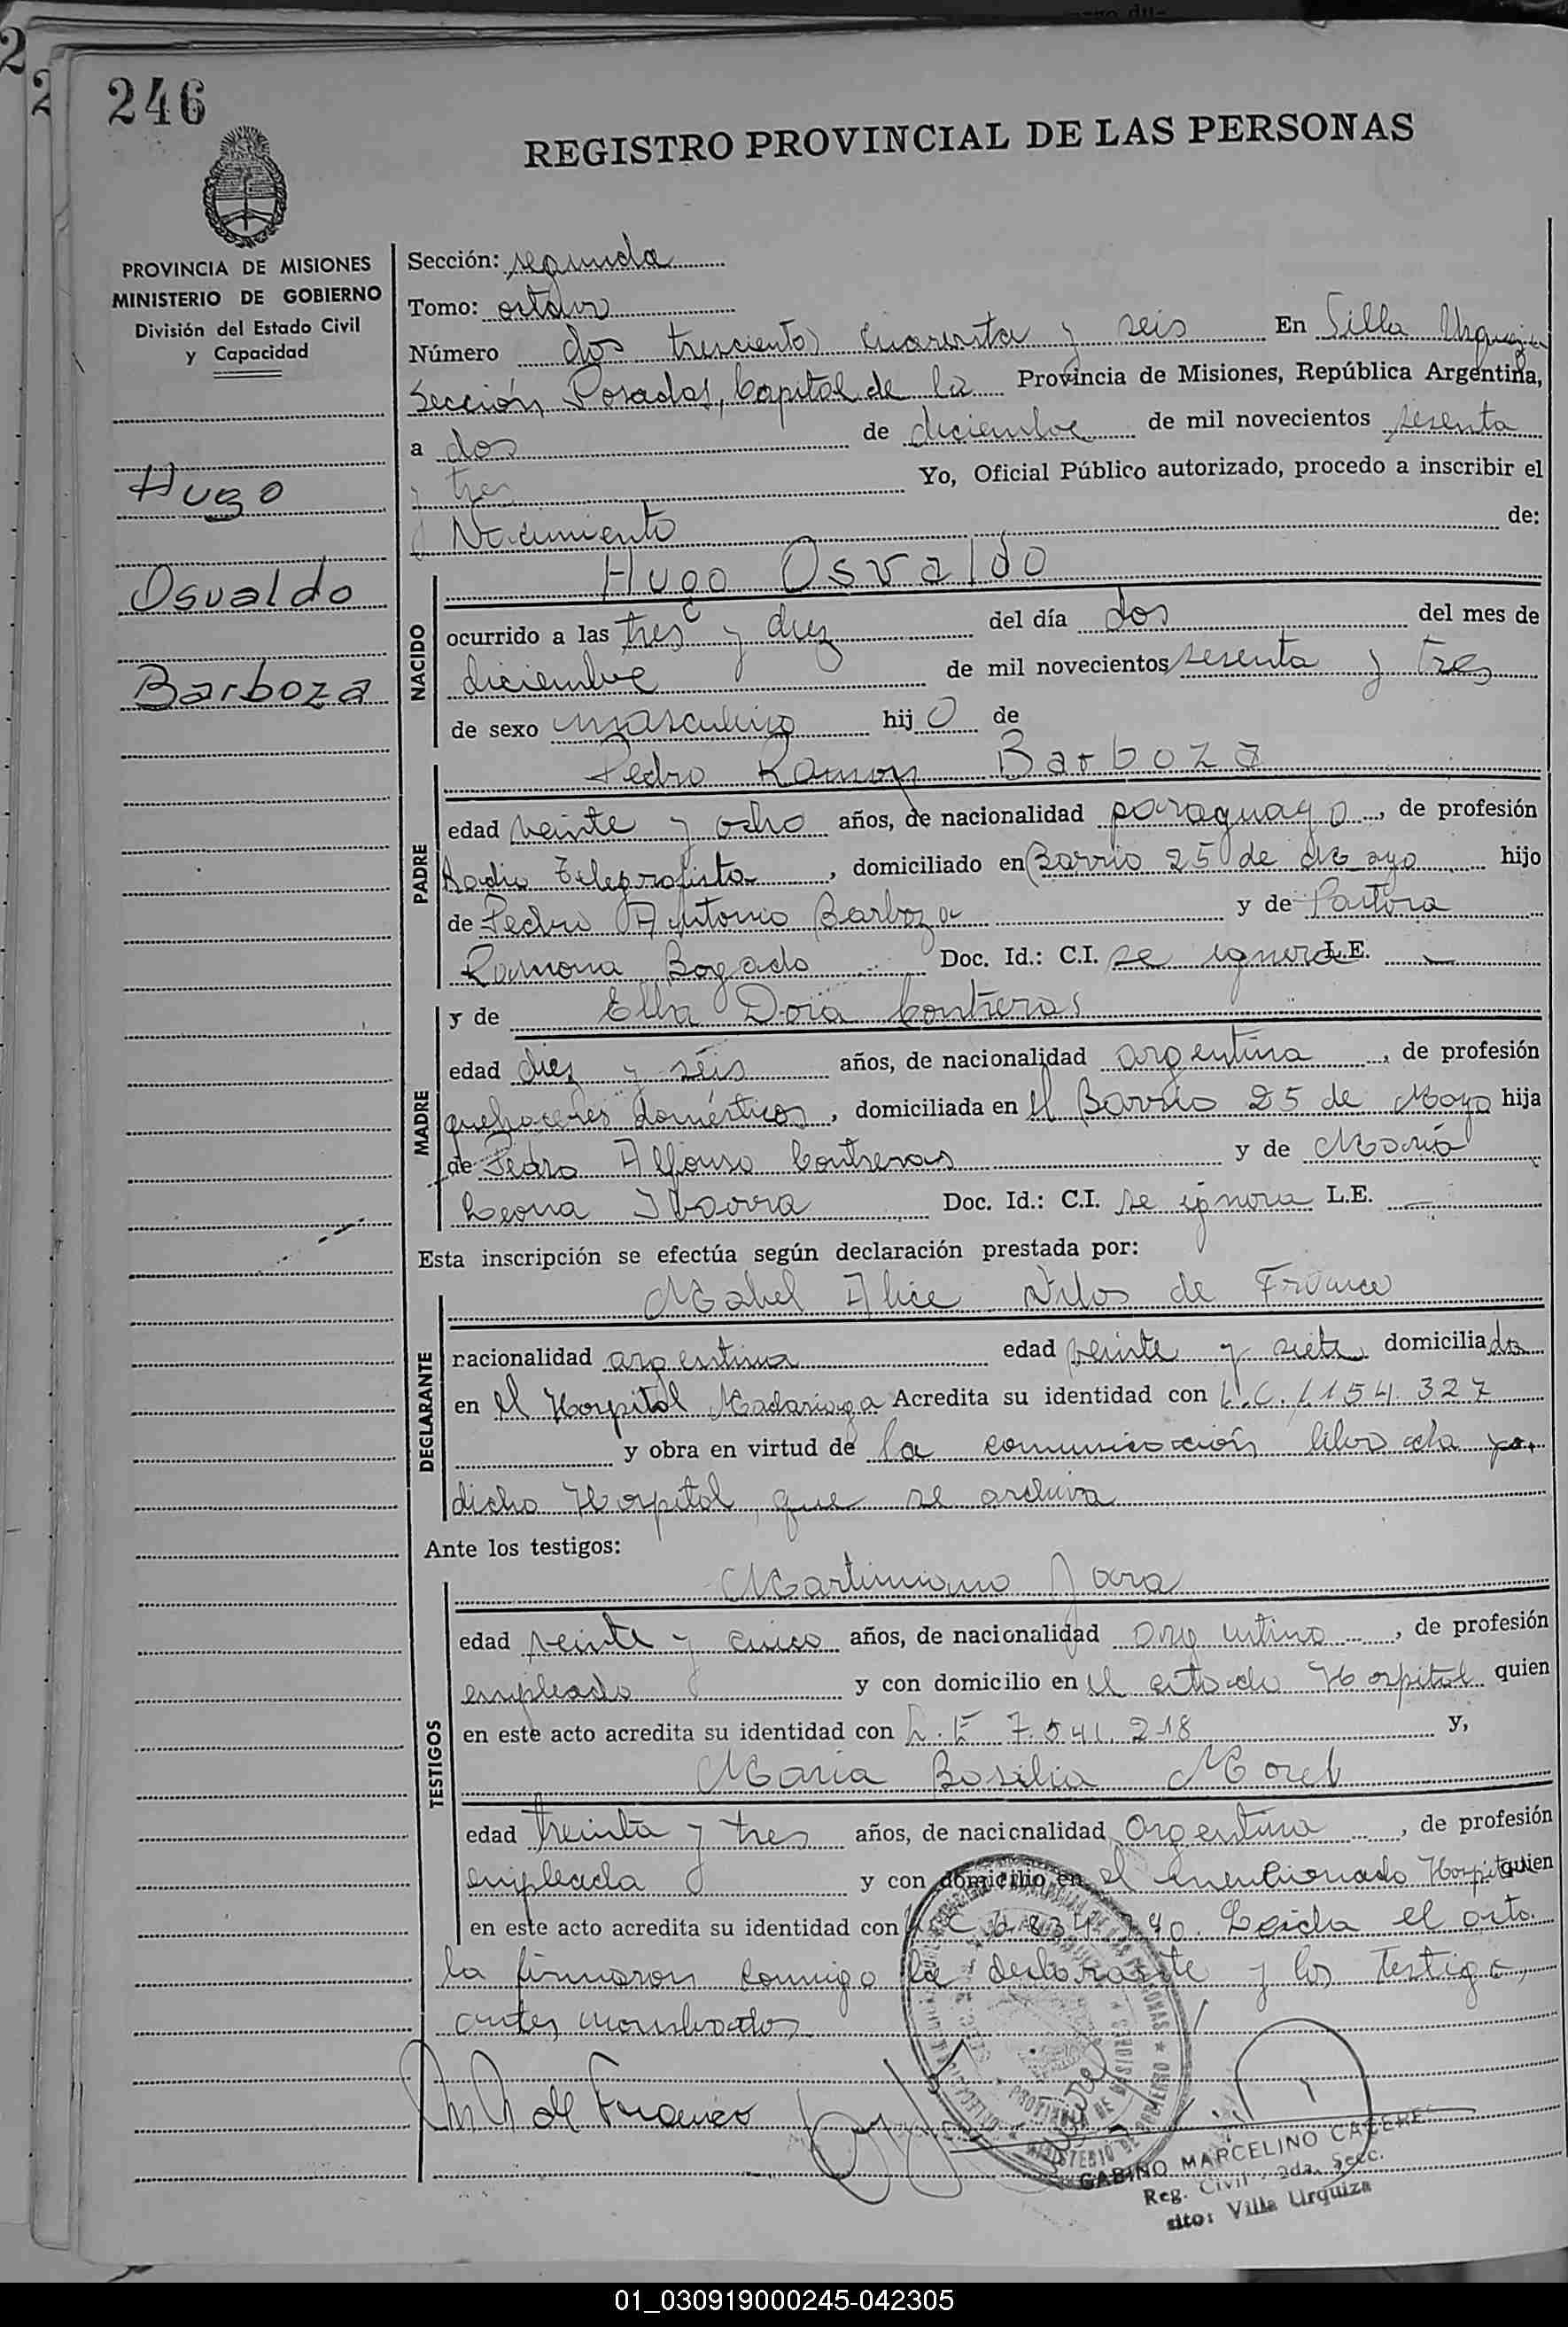 246
REGISTRO PROVINCIAL DE LAS PERSONAS
PROVINCIA DE MISIONES
MINISTERIO DE GOBIERNO
División del Estado Civil
y Capacidad
Hugo
Osvaldo
Barboza
Sección: segunda
Tomo: octavo
Número dos trescientos cuarenta y seis En Villa Urquiza
Sección, Posadas, Capital de la Provincia de Misiones, República Argentina,
a dos de diciembre de mil novecientos sesenta
y tres Yo, Oficial Público autorizado, procedo a inscribir el
Nacimiento de:
NACIDO
Hugo Osvaldo
ocurrido a las tres y diez del día dos del mes de
diciembre de mil novecientos sesenta y tres
de sexo masculino hijo de
PADRE
Pedro Ramon Barboza
edad veinte y ocho años, de nacionalidad paraguayo, de profesión
Radio Telegrafista, domiciliado en Barrio 25 de Mayo hijo
de Pedro Antonio Barboza y de Pastora
Ramona Bogado Doc. Id.: C.I. se ignora L.E. —
MADRE
y de Elba Contreras
edad diez y seis años, de nacionalidad argentina, de profesión
quehaceres domésticos, domiciliada en el Barrio 25 de Mayo hija
de Pedro Alfonso Contreras y de María
Leona Ibarra Doc. Id.: C.I. se ignora L.E. —
Esta inscripción se efectúa según declaración prestada por:
DECLARANTE
Mabel Alice de Franco
nacionalidad argentina edad veinte y siete domiciliada
en el Hospital Madariaga Acredita su identidad con L.C. 1.154.327
y obra en virtud de la comunicación librada por
dicho Hospital, que se archiva
Ante los testigos:
TESTIGOS
Martiniano Jara
edad veinte y cinco años, de nacionalidad argentino, de profesión
empleado y con domicilio en el citado Hospital quien
en este acto acredita su identidad con L.E 7.541.218 y,
Maria Basilia Morel
edad treinta y tres años, de nacionalidad Argentina, de profesión
empleada y con domicilio en el mencionado Hospital quien
en este acto acredita su identidad con Leida el acta
la firmaron conmigo la declarante y los testigos
antes nombrados
de Franco
GABINO MARCELINO CACERES
Reg. Civil 2da. Secc.
sito: Villa Urquiza
01_030919000245-042305